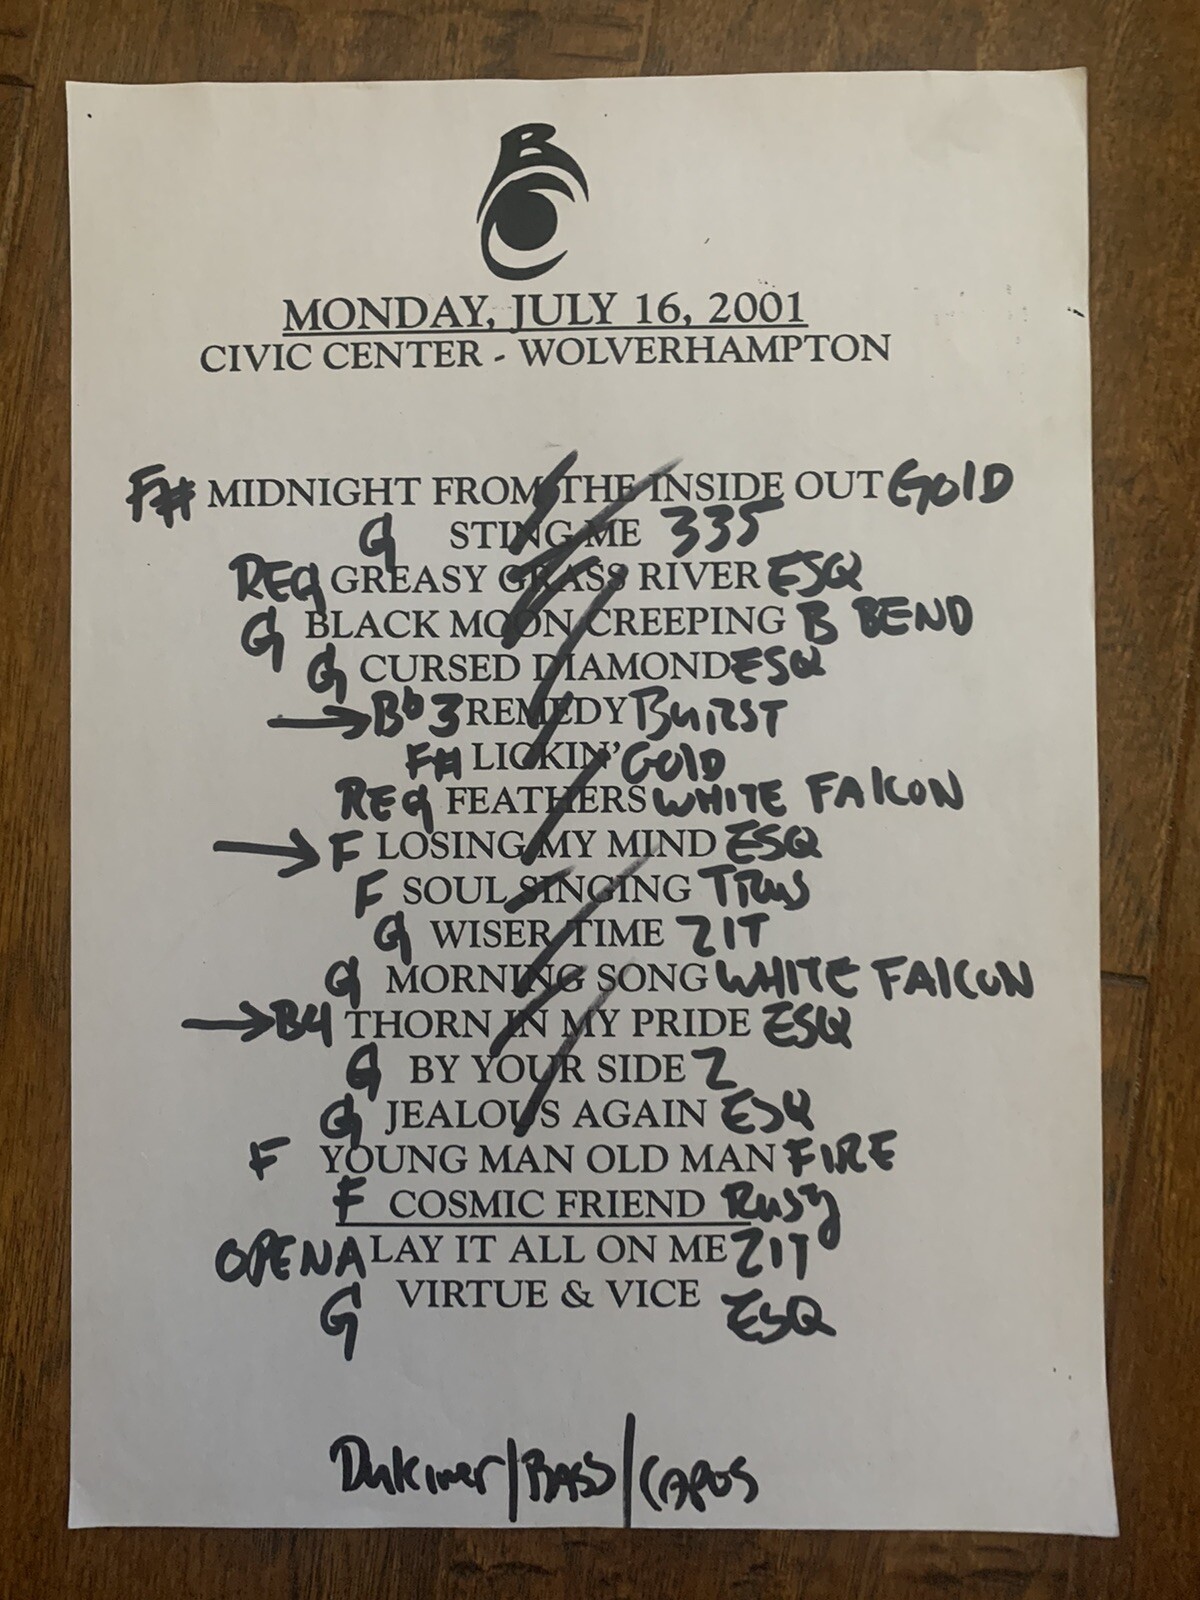 BC
MONDAY, JULY 16, 2001
CIVIC CENTER - WOLVERHAMPTON
F# MIDNIGHT FROM THE INSIDE OUT GOLD
G STING ME 335
REG GREASY GRASS RIVER ESQ
G BLACK MOON CREEPING B BEND
G CURSED DIAMOND ESQ
→ Bb 3 REMEDY BURST
F# LICKIN' GOLD
REG FEATHERS WHITE FALCON
→ F LOSING MY MIND ESQ
F SOUL SINGING
G WISER TIME ZIT
G MORNING SONG WHITE FALCON
→ B4 THORN IN MY PRIDE ESQ
G BY YOUR SIDE Z
G JEALOUS AGAIN ESQ
F YOUNG MAN OLD MAN FIRE
F COSMIC FRIEND RUSTY
OPEN A LAY IT ALL ON ME ZIT
G VIRTUE & VICE ESQ
BASS / CAPOS